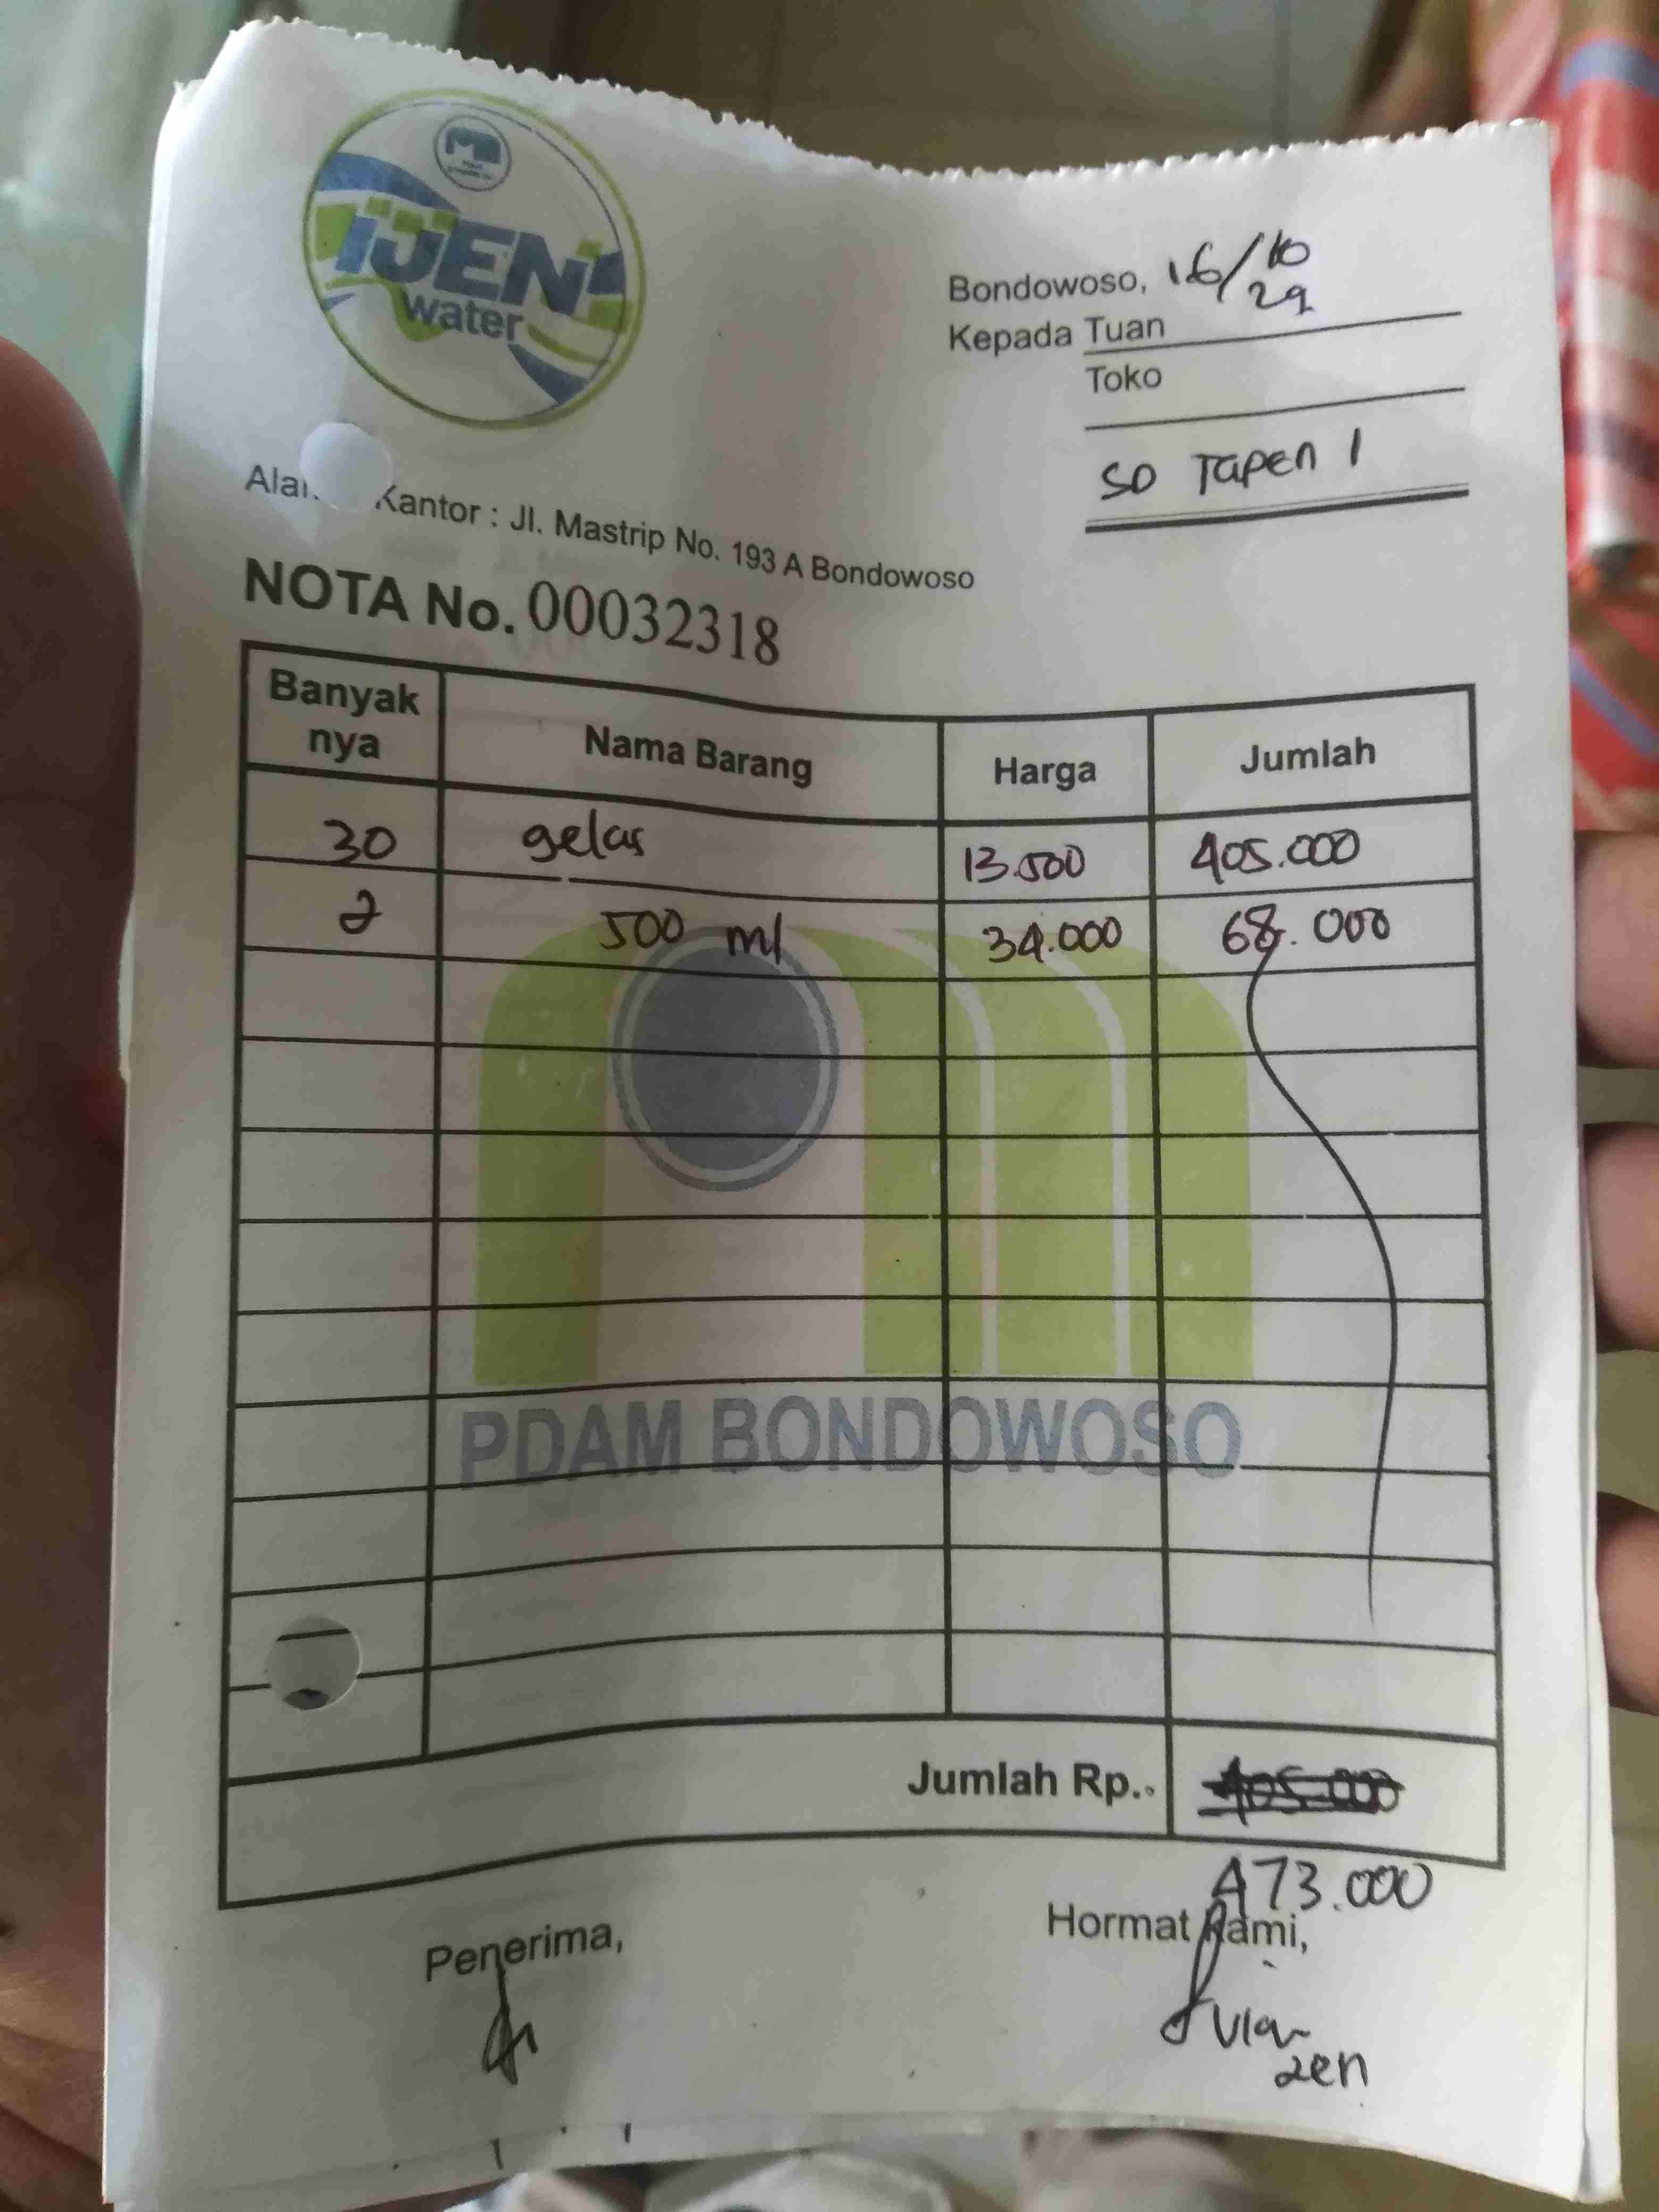 IJEN
water
Bondowoso, 16/10
29
Kepada Tuan
Toko
SD Tapen 1
Kantor : Jl. Mastrip No. 193 A Bondowoso
NOTA No. 00032318
Banyak nya Nama Barang Harga Jumlah
30 gelas 13.500 405.000
2 500 ml 34.000 68.000
PDAM BONDOWOSO
Jumlah Rp.. 405.000
473.000
Penerima, Hormat Kami,